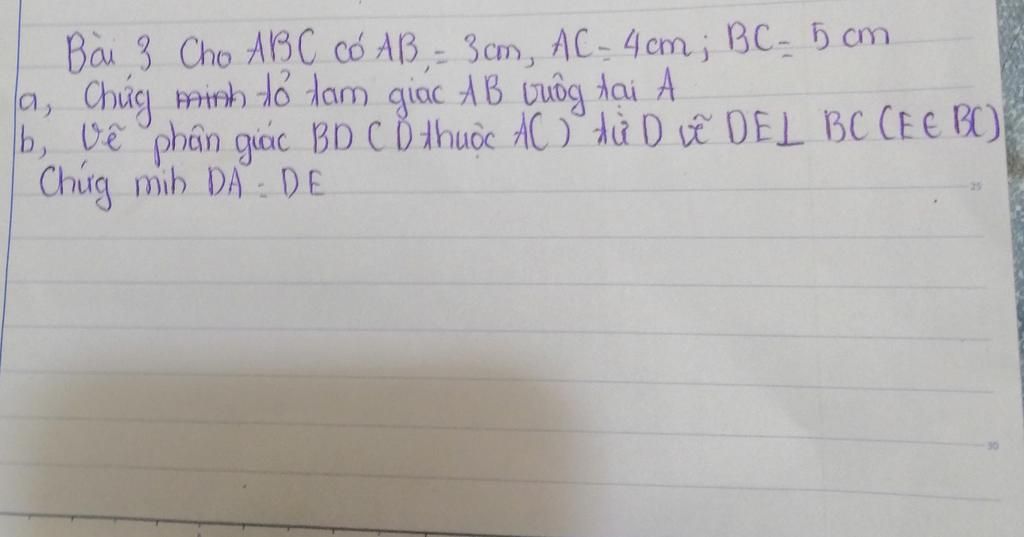 Bài 3 Cho ABC có AB = 3cm, AC = 4cm; BC = 5 cm
a, Chứg minh tỏ tam giác AB vuôg tại A
b, Vẽ phân giác BD ( D thuộc AC ) từ D vẽ DE⊥ BC ( E ∈ BC)
Chứg mih DA = DE
25
30